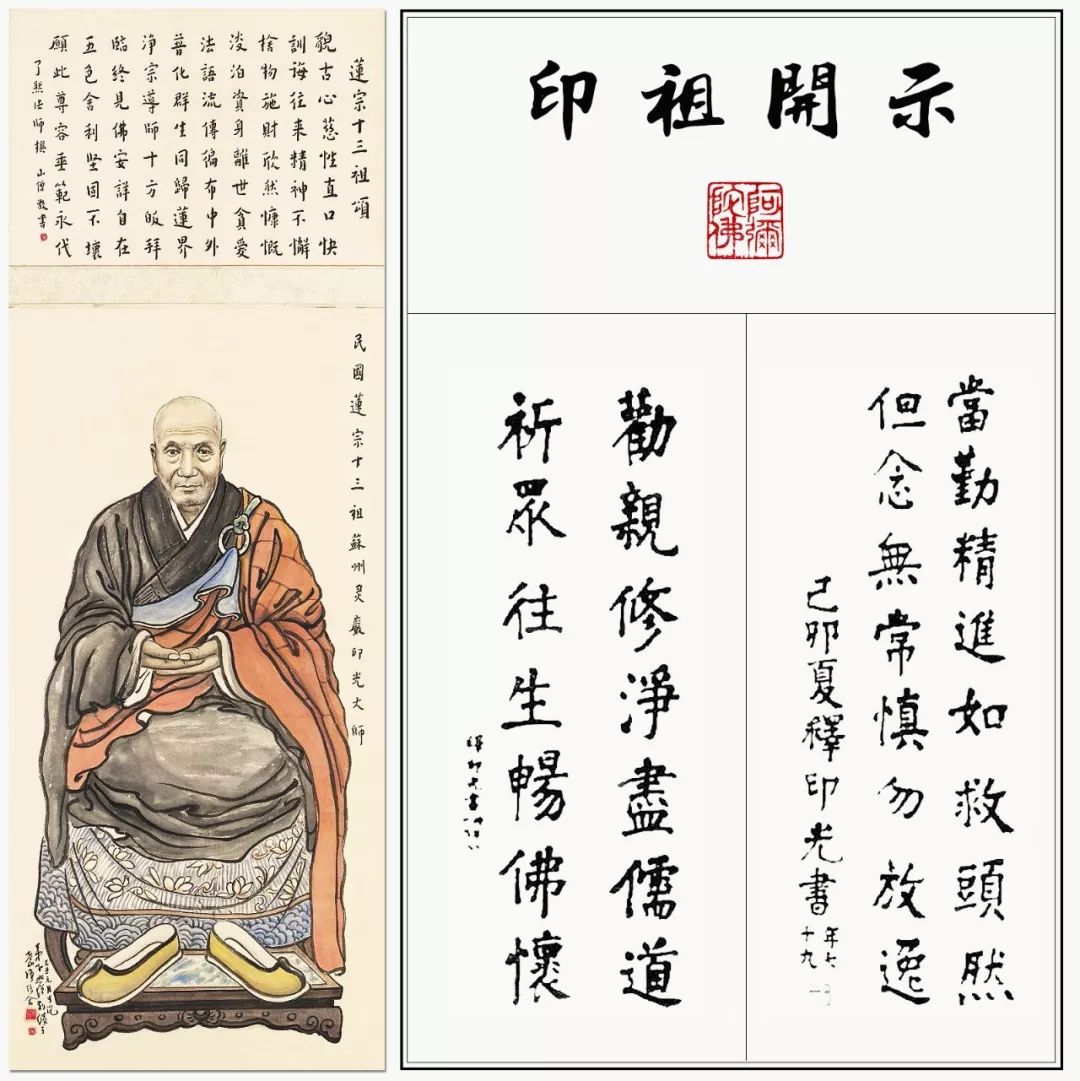 蓮宗十三祖頌
貌古心慈性直口快
訓誨往來精神不懈
捨物施財欣然慷慨
淡泊資身離世貪愛
法語流傳徧布中外
普化群生同歸蓮界
净宗導師十方皈拜
臨終見佛安詳自在
五色舍利堅固不壞
願此尊容垂範永代
了然法師撰 山僧敬書
民國蓮宗十三祖蘇州灵巖印光大師
印祖開示
阿彌陀佛
當勤精進如救頭然
但念無常慎勿放逸
己卯夏釋印光書
年七十九
勸親修淨盡儒道
祈眾往生暢佛懷
釋印光書